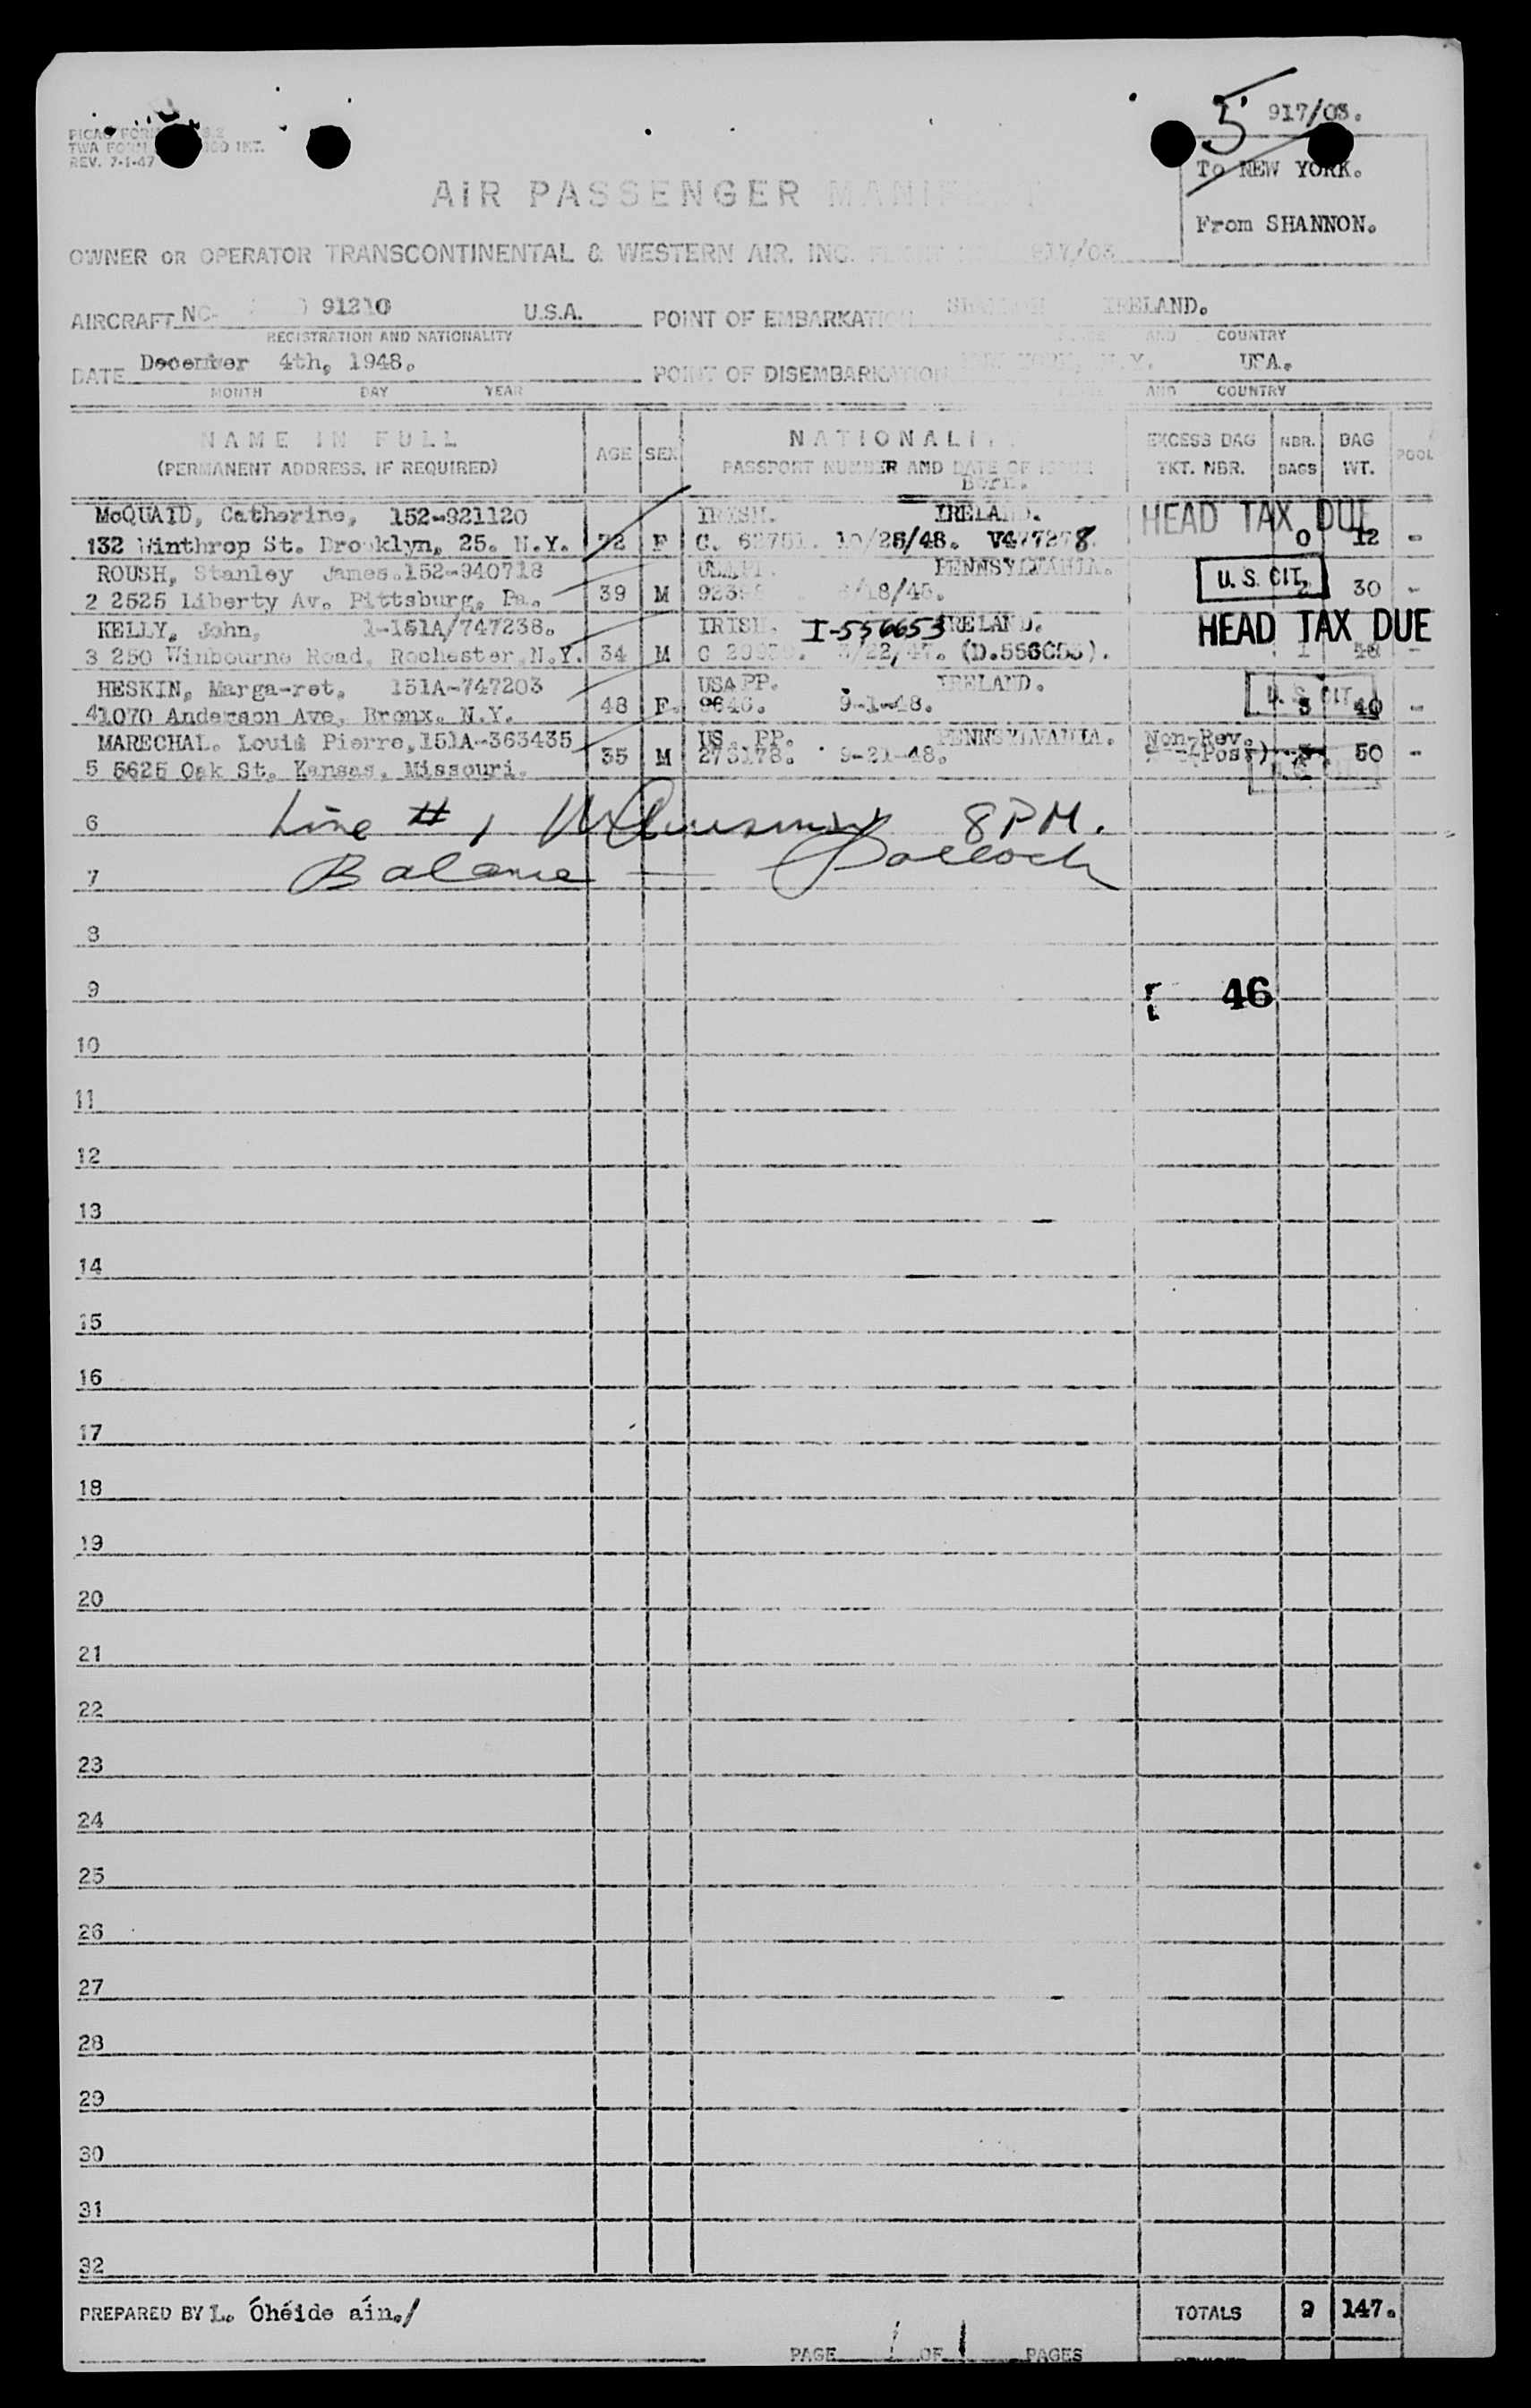 917/03.
5
To NEW YORK.
From SHANNON.
TWA FORM
REV. 7-1-47
AIR PASSENGER
OWNER OR OPERATOR TRANSCONTINENTAL & WESTERN AIR. INC. 917/03
AIRCRAFT NC- 91210 U.S.A. POINT OF EMBARKATION IRELAND.
REGISTRATION AND NATIONALITY AND COUNTRY
DATE December 4th, 1948. POINT OF DISEMBARKATION N.Y. USA.
MONTH DAY YEAR AND COUNTRY
NAME IN FULL AGE SEX NATIONALITY EXCESS BAG NBR. BAG POOL
(PERMANENT ADDRESS, IF REQUIRED) PASSPORT NUMBER AND DATE OF ISSUE TKT. NBR. BAGS WT.
Born.
McQUAID, Catherine, 152-921120 IRISH. IRELAND. HEAD TAX DUE
132 Winthrop St. Brooklyn, 25. N.Y. 72 F C. 62751. 10/25/48. V477278. 0 12 -
ROUSH, Stanley James.152-940718 PENNSYLVANIA. U. S. CIT.
2 2525 Liberty Av. Pittsburg, Pa. 39 M /18/45. 30 -
KELLY, John, 1-151A/747238. IRISH. I-556653 IRELAND. HEAD TAX DUE
3 250 Winbourne Road, Rochester N.Y. 34 M /22/47. 1 -
HESKIN, Marga-ret, 151A-747203 USA PP. IRELAND. U. S. CIT.
4 1070 Anderson Ave, Bronx. N.Y. 48 F. 9-1-48. 3 40 -
MARECHAL. Louis Pierre, 151A-363435 US. PP. PENNSYLVANIA. Non-Rev.
5 5625 Oak St. Kansas, Missouri. 35 M 276178. 9-21-48. 50 -
6 Line # 1 8 PM.
7 Balance —
8
9 46
10
11
12
13
14
15
16
17
18
19
20
21
22
23
24
25
26
27
28
29
30
31
32
PREPARED BY L. Óhéide áin./ TOTALS 9 147.
PAGE 1 OF 1 PAGES